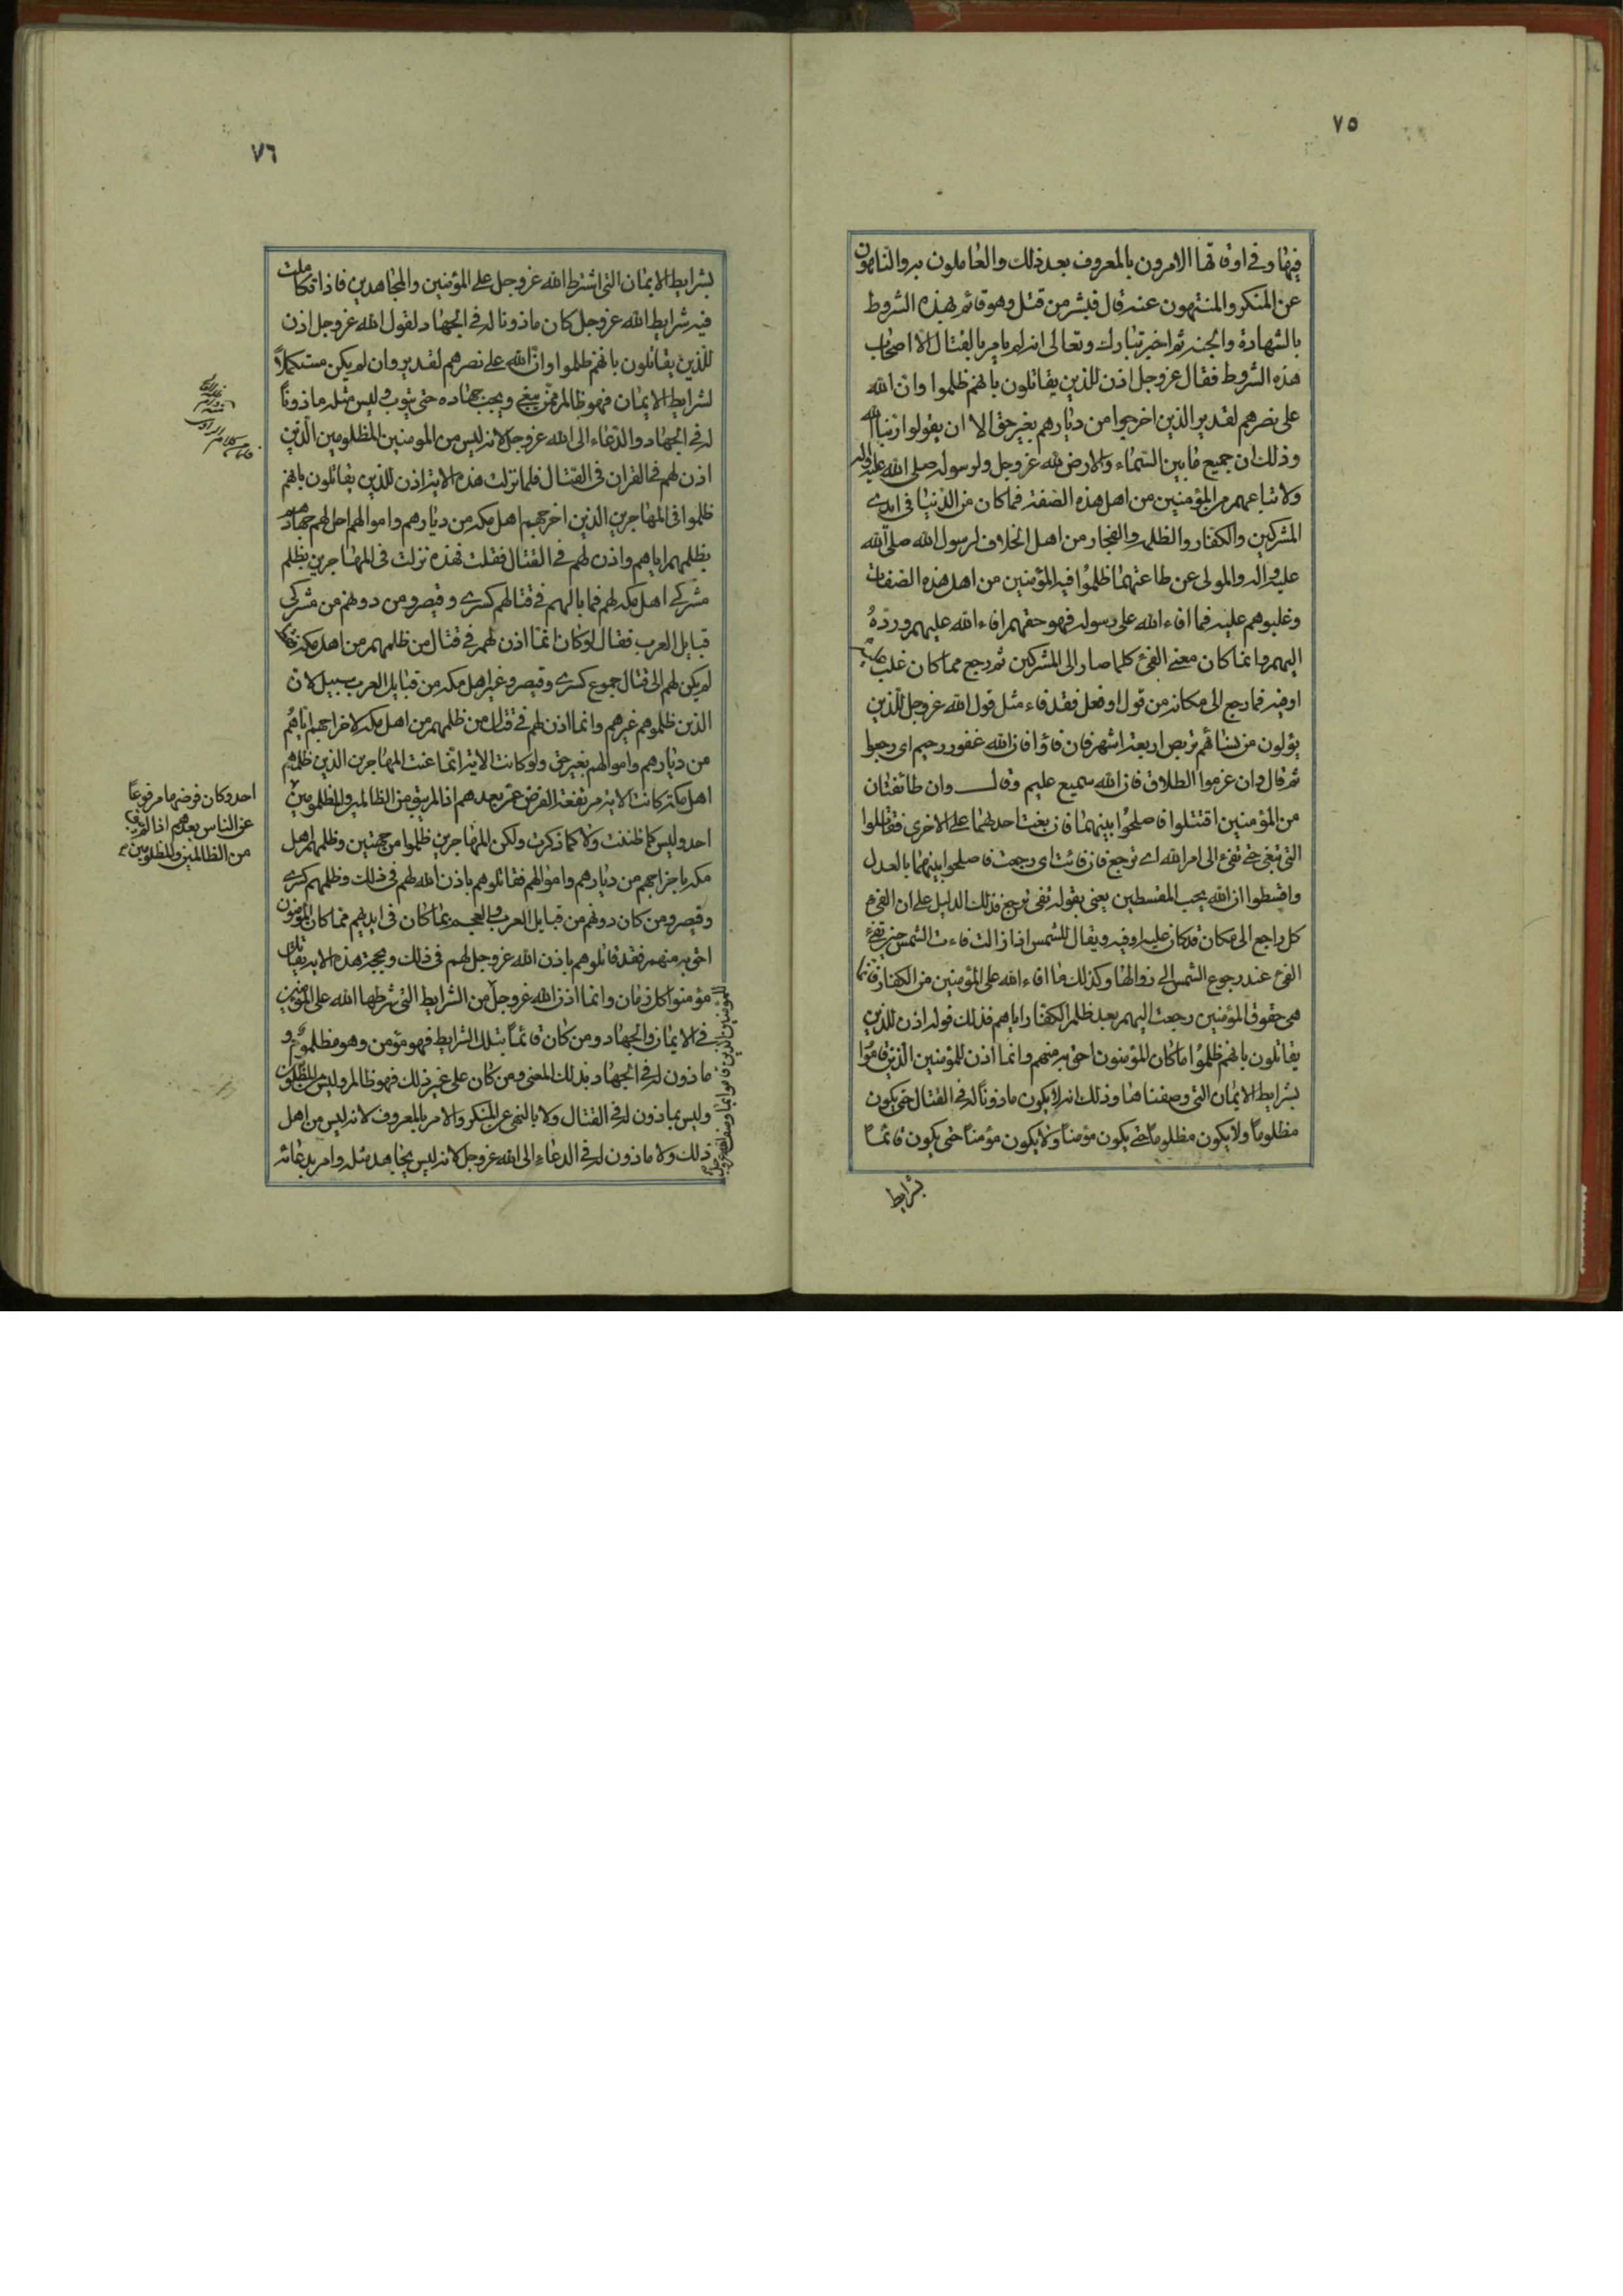 ٧٥
فيها وفي اوقاتها الامرون بالمعروف بعد ذلك والعاملون به والناهون
عن المنكر والمنتهون عنه قال فبشر من قتل وهو قائم بهذه الشروط
بالشهادة والجنة ثم اخبر تبارك وتعالى انه لم يامر بالقتال الا اصحاب
هذه الشروط فقال عز وجل اذن للذين يقاتلون بانهم ظلموا وان الله
على نصرهم لقدير الذين اخرجوا من ديارهم بغير حق الا ان يقولوا ربنا الله
وذلك ان جميع ما بين السماء والارض لله عز وجل ولرسوله صلى الله عليه واله
ولاتباعهم من المؤمنين من اهل هذه الصفة فما كان من الدنيا في ايدي
المشركين والكفار والظلمه والفجار من اهل الخلاف لرسول الله صلى الله
عليه واله والمولى عن طاعتهما ظلموا فيه المؤمنين من اهل هذه الصفات
وغلبوهم عليه فما افاء الله على رسوله فهو حقهم افاء الله عليهم ورده
اليهم وانما كان معنى الفئ كلما صار الى المشركين ثم رجع مما كان غلب عليه
او فيه فما رجع الى مكانه من قول او فعل فقد فاء مثل قول الله عز وجل للذين
يؤلون من نسائهم تربص اربعة اشهر فان فاؤا فان الله غفور رحيم اى رجعوا
ثم قال وان عزموا الطلاق فان الله سميع عليم وقال وان طائفتان
من المؤمنين اقتتلوا فاصلحوا بينهما فان بغت احدهما على الاخرى فقاتلوا
التي تبغى حتى تفئ الى امر الله اى ترجع فان فائت اى رجعت فاصلحوا بينهما بالعدل
واقسطوا ان الله يحب المقسطين يعنى بقوله تفئ ترجع فذلك الدليل على ان الفئ
كل راجع الى مكان قد كان عليه او فيه ويقال للشمس اذا زالت فاءت الشمس حين تفئ
الفئ عند رجوع الشمس الى زوالها وكذلك ما افاء الله على المؤمنين من الكفار فانما
هي حقوق المؤمنين رجعت اليهم بعد ظلم الكفار اياهم فذلك قوله اذن للذين
يقاتلون بانهم ظلموا ما كان المؤمنون احق به منهم وانما اذن للمؤمنين الذين قاموا
بشرايط الايمان التي وصفناها وذلك انه لا يكون ماذونا له في القتال حتى يكون
مظلوما ولا يكون مظلوما حتى يكون مؤمنا ولا يكون مؤمنا حتى يكون قائما
بشرايط
٧٦
بشرايط الايمان التى اشترط الله عز وجل على المؤمنين والمجاهدين فاذا تكاملت
فيه شرايط الله عز وجل كان ماذونا له في الجهاد لقول الله عز وجل اذن
للذين يقاتلون بانهم ظلموا وان الله على نصرهم لقدير وان لم يكن مستكملا
لشرايط الايمان فهو ظالم ممن يبغى ويجب جهاده حتى يتوب وليس مثله ماذونا
له في الجهاد والدعاء الى الله عز وجل لانه ليس من المومنين المظلومين الذين
اذن لهم فى القران فى القتال فلما نزلت هذه الاية اذن للذين يقاتلون بانهم
ظلموا فى المهاجرين الذين اخرجهم اهل مكه من ديارهم واموالهم احل لهم جهادهم
بظلمهم اياهم واذن لهم في القتال فقلت فهذه نزلت فى المهاجرين بظلم
مشركي اهل مكه لهم فما بالهم في قتالهم كسرى وقيصر ومن دونهم من مشركى
قبايل العرب فقال لو كان انما اذن لهم في قتال من ظلمهم من اهل مكة فقط
لم يكن لهم الى قتال جموع كسرى وقيصر وغير اهل مكه من قبايل العرب سبيل لان
الذين ظلموهم غيرهم وانما اذن لهم في قتال من ظلمهم من اهل مكه لاخراجهم اياهم
من ديارهم واموالهم بغير حق ولو كانت الاية انما عنت المهاجرين الذين ظلمهم
اهل مكة كانت الاية مرتفعة الفرض عمن بعدهم اذا لم يبق من الظالمين والمظلومين
احد وليس كما ظننت ولا كما ذكرت ولكن المهاجرين ظلموا من جهتين وظلمهم اهل
مكه باخراجهم من ديارهم واموالهم فقاتلوهم باذن الله لهم في ذلك وظلمهم كسرى
وقيصر ومن كان دونهم من قبايل العرب والعجم بما كان فى ايديهم مما كان المؤمنون
احق به منهم فقد قاتلوهم باذن الله عز وجل لهم فى ذلك وبحجة هذه الاية يقاتل
مؤمنوا كل زمان وانما اذن الله عز وجل من الشرايط التى شرطها الله على المؤمنين
في الايمان والجهاد ومن كان قائما بتلك الشرايط فهو مؤمن وهو مظلوم و
ماذون له في الجهاد بذلك المعنى ومن كان على غير ذلك فهو ظالم وليس من المظلومين
وليس بماذون له في القتال ولا بالنهى عن المنكر والامر بالمعروف لانه ليس من اهل
ذلك ولا ماذون له في الدعاء الى الله عز وجل لانه ليس يجاهد مثله وامر بدعائه
للمؤمنين الذين قاموا بما وصف الله عز وجل
احد وكان فرضها مرفوعا
عن الناس بعدهم اذا لم يبق
من الظالمين والمظلومين